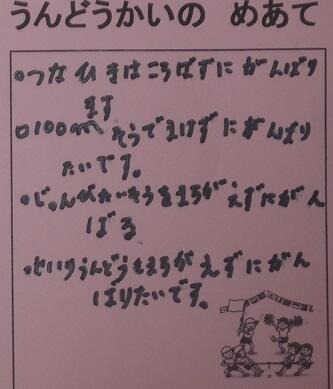 うんどうかいの めあて
○つなひきはころばずにがんばり
ます
○100mそうでまけずにがんばり
たいです。
○じゅんびたいそうをまちがえずにがん
ばる
○せいりうんどうもまちがえずにがん
ばりたいです。